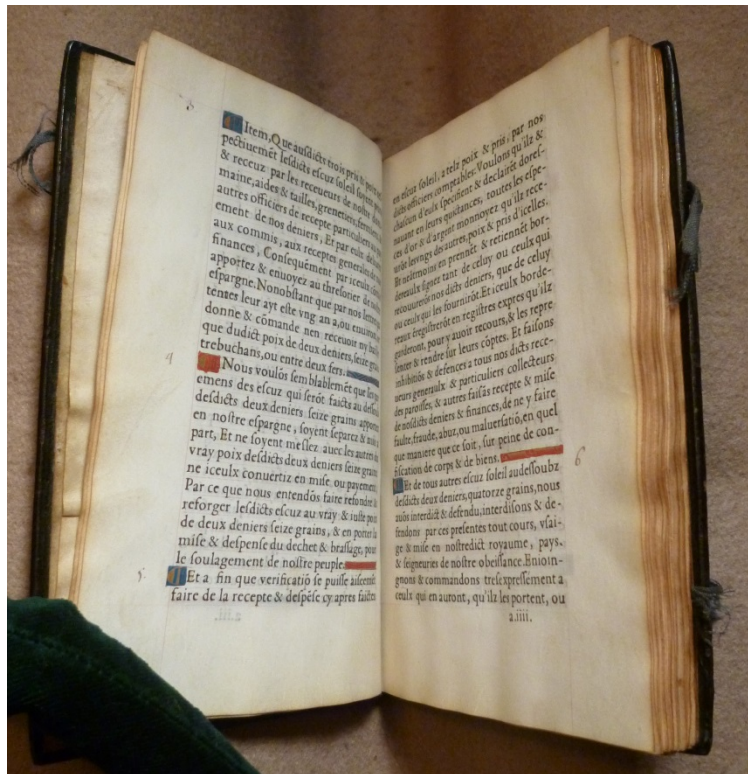 3
Item, Que ausdicts trois pris & poix
pectiuemēt lesdicts escuz soleil soyent
& receuz par les receueurs de nostre
maine, aides & tailles, grenetiers,
autres officiers de recepte particuliere
ement de nos deniers, Et par eulx
aux commis, aux receptes generales de
finances, Consequēment par iceulx
apportez & enuoyez au thresorier de
espargne. Nonobstant que par nos
tenues leur ayt este vng an a, ou enuiron
donne & cōmande nen receuoir ny
que dudict poix de deux deniers, seize
trebuchans, ou entre deux fers.
4
Nous voulōs semblablemēt que les
emens des escuz qui serōt faicts au dessoubz
desdicts deux deniers seize grains
en nostre espargne, soyent separez & mis a
part, Et ne soyent meslez auec les autres
vray poix desdicts deux deniers seize grains
ne iceulx conuertiz en mise, ou payement,
Par ce que nous entendōs faire refondre &
reforger lesdicts escuz au vray & iuste poix
de deux deniers seize grains, & en porter la
mise & despense du dechet & brassage, pour
le soulagement de nostre peuple.
5.
Et a fin que verificatiō se puisse aiseemēt
faire de la recepte & despēse cy apres faictes
en escut soleil, a telz poix & pris, par nos
dicts officiers comptables: Voulons qu'ilz &
chascun d'eulx specifient & declairēt dores-
nauant en leurs quictances, toutes les espe-
ces d'or & d'argent monnoyez qu'ilz rece-
urōt les vngs des autres, poix & pris d'icelles.
Et neātmoins en prennēt & retiennēt bor-
dereaulx signez tant de celuy ou ceulx qui
recouurerōt nos dicts deniers, que de celuy
ou ceulx qui les fournirōt. Et iceulx borde-
reaux ēregistrerōt en registres expres qu'ilz
garderont, pour y auoir recours, & les repre
senter & rendre sur leurs cōptes. Et faisons
inhibitiōs & defences a tous nos dicts rece-
ueurs generaulx & particuliers collecteurs
des paroisses, & autres faisās recepte & mise
de nosdicts deniers & finances, de ne y faire
faulte, fraude, abuz, ou maluersatiō, en quel
que maniere que ce soit, sur peine de con-
fiscation de corps & de biens.
6
Et de tous autres escuz soleil audessoubz
desdicts deux deniers, quatorze grains, nous
auōs interdict & defendu, interdisons & de-
fendons par ces presentes tout cours, vsai-
ge & mise en nostredict royaume, pays,
& seigneuries de nostre obeissance. Enioin-
gnons & commandons tresexpressement a
ceulx qui en auront, qu'ilz les portent, ou
a.iiii.